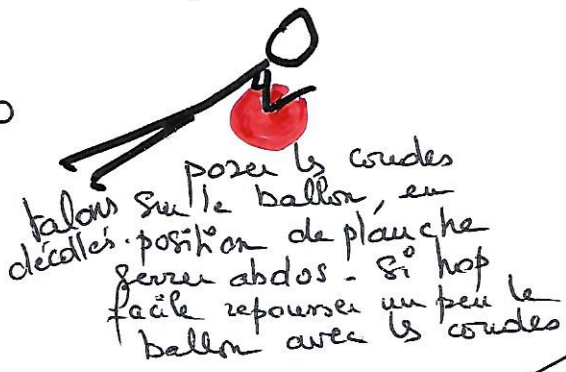 poser ls coudes
talons sur le ballon, en
décollés. position de planche
serrer abdos - Si hop
facile repousser un peu le
ballon avec ls coudes